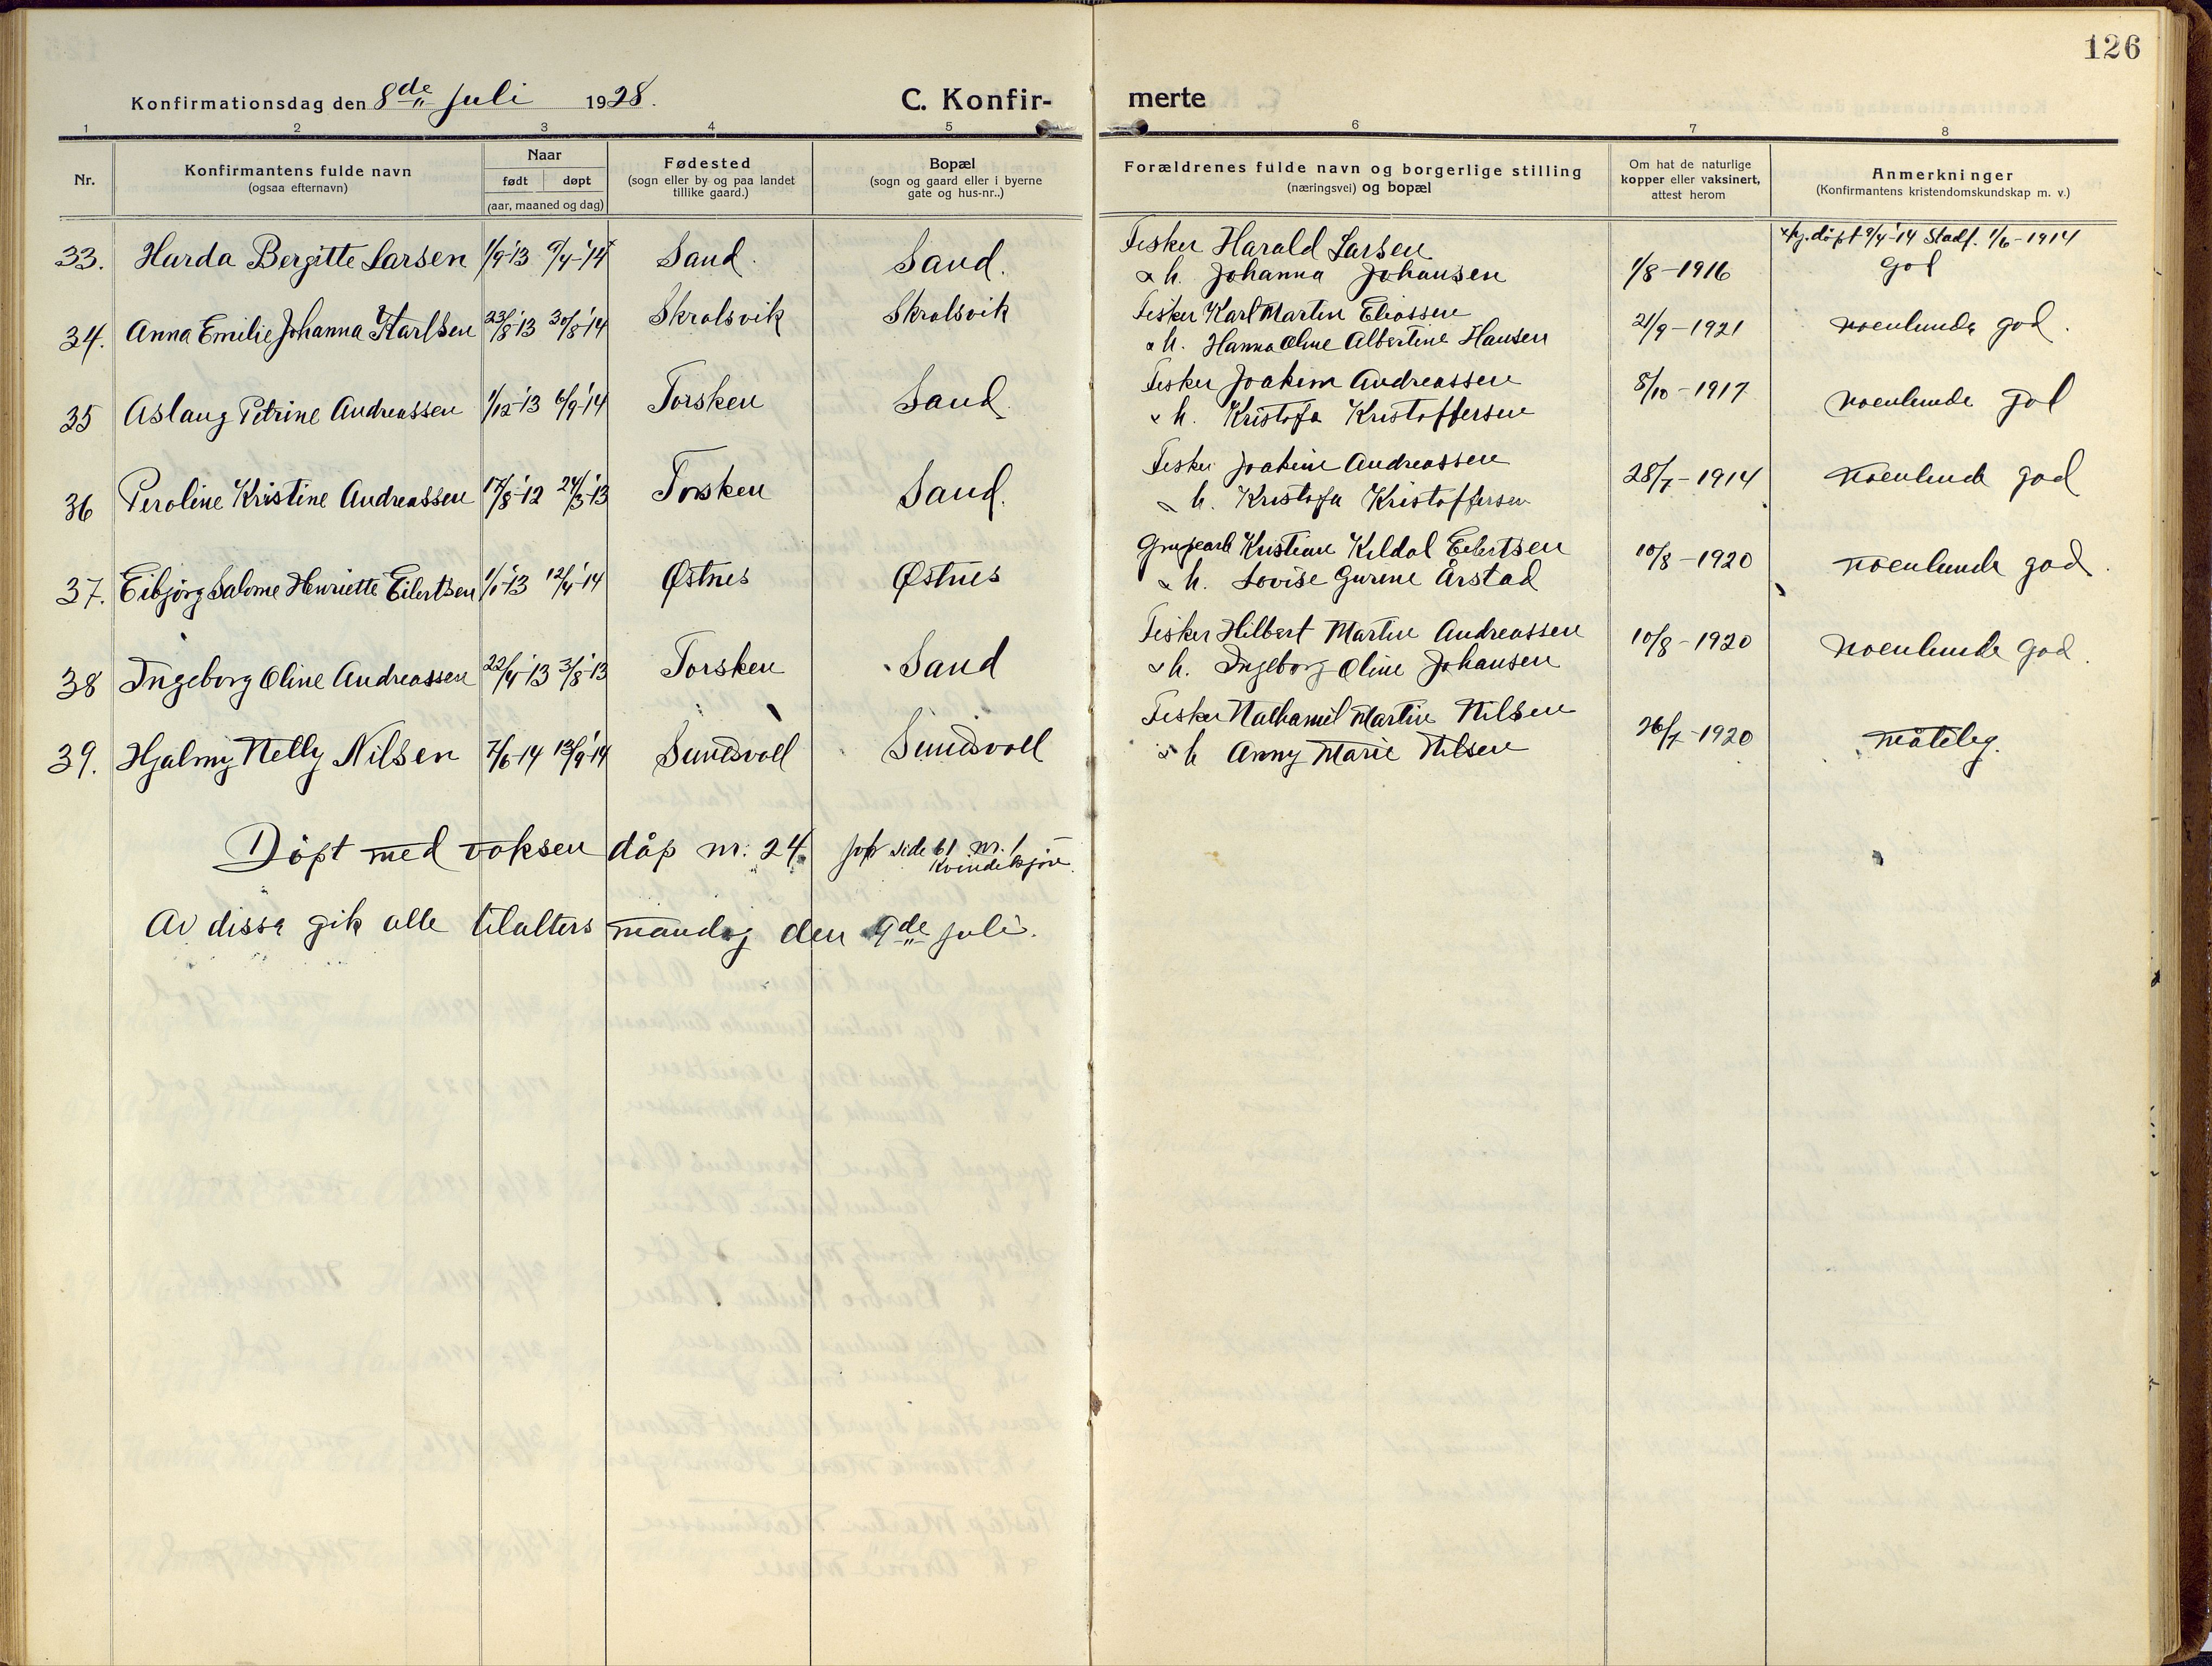 126
Konfirmationsdag den 8de Juli 1928. C. Konfir- merte
1 2 3 4 5 6 7 8
Nr.
Konfirmantens fulde navn
(ogsaa efternavn)
Naar
født døpt
(aar, maaned og dag)
Fødested
(sogn eller by og paa landet
tillike gaard.)
Bopæl
(sogn og gaard eller i byerne
gate og hus-nr..)
Forældrenes fulde navn og borgerlige stilling
(næringsvei) og bopæl
Om hat de naturlige
kopper eller vaksinert,
attest herom
Anmerkninger
(Konfirmantens kristendomskundskap m. v.)
33. Harda Bergitte Larsen 1/9-13 9/4-'14x Sand. Sand. Fisker Harald Larsen
& h. Johanna Johansen 1/8-1916 x hj. döpt 9/4-'14 Stadf. 1/6-1914
god
34. Anna Emilie Johanna Karlsen 23/8-'13 30/8-'14 Skrolsvik Skrolsvik Fisker Karl Martin Eliassen
& h. Hanna Oline Albertine Hansen 21/9-1921 noenlunde god.
35 Aslaug Petrine Andreassen 1/12-13 6/9-'14 Torsken Sand. Fisker Joakim Andreassen
& h. Kristofa Kristoffersen 8/10-1917 noenlunde god
36 Peroline Kristine Andreassen 17/8-'12 24/3-'13 Torsken Sand. Fisker Joakim Andreassen
& h. Kristofa Kristoffersen 28/7-1914 noenlunde god
37. Eibjörg Salome Henriette Eilertsen 1/1-'13 12/4-'14 Østnes Østnes Grupearb Kristian Kildal Eilertsen
& h. Lovise Gurine Årstad 10/8-1920 noenlunde god.
38 Ingeborg Oline Andreassen 22/4-'13 3/8-'13 Torsken Sand Fisker Hilbert Martin Andreassen
& h. Ingeborg Oline Johansen 10/8-1920 noenlunde god.
39. Hjalmy Nelly Nilsen 7/6-14 13/9-'14 Sundsvoll Sundsvoll Fisker Nathaniel Martin Nilsen
& h Anny Marie Nilsen 26/7-1920 måtelig.
Döpt med voksen dåp nr. 24. side 61 nr. 1
Kvindekjön.
Av disse gik alle tilalters mandag den 9de juli.